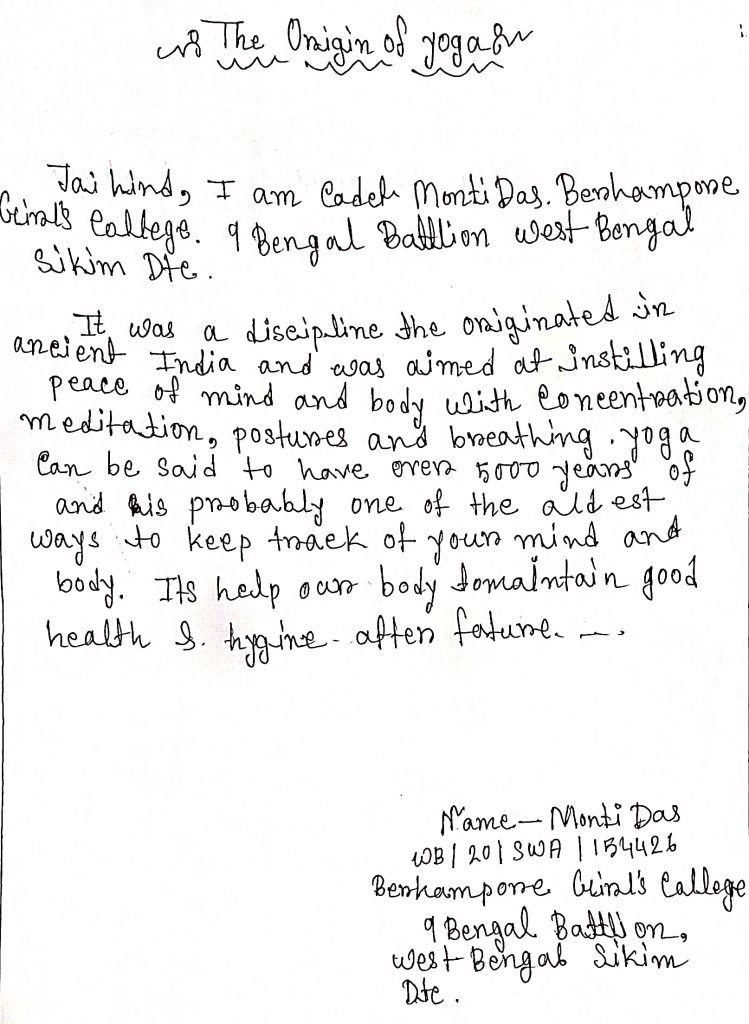 The Origin of yoga
Jai hind, I am Cadet Monti Das. Berhampore
Giral's Callege. 9 Bengal Battlion west Bengal
Sikim Dte.
It was a discipline the originated in
ancient India and was aimed at instilling
peace of mind and body with Concentration,
meditation, postures and breathing. yoga
Can be said to have over 5000 years of
and his probably one of the aldest
ways to keep track of your mind and
body. Its help our body tomaintain good
health & hygine after fature.
Name - Monti Das
WB/20/SWA/154426
Berhampore Giral's Callege
9 Bengal Battlion,
West Bengal Sikim
Dte.